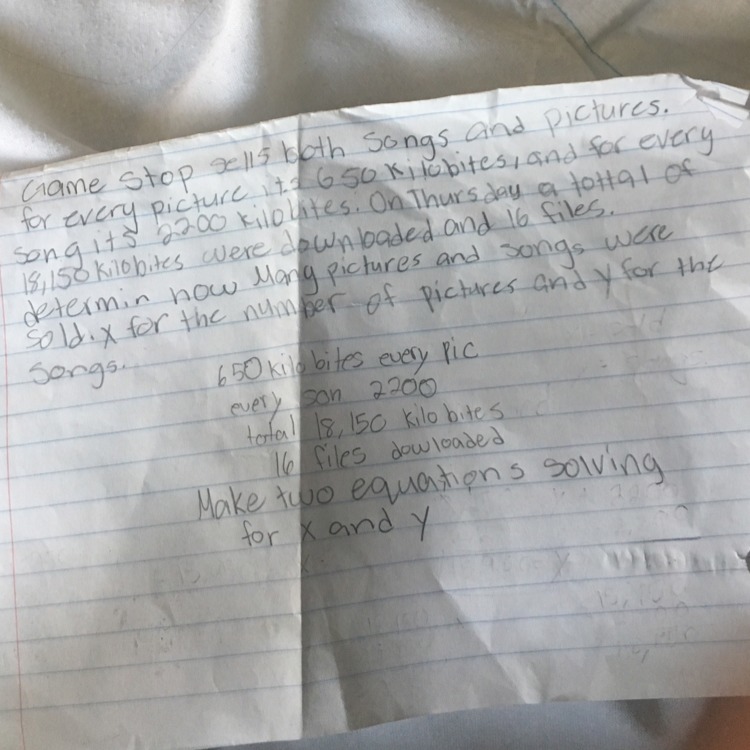 Game Stop sells both songs and pictures.
for every picture its 650 kilobites, and for every
song its 2200 kilobites. On Thursday a tottal of
18,150 kilobites were downloaded and 16 files.
determin how Many pictures and songs were
sold. X for the number of pictures and y for the
songs.
650 kilobites every pic
every son 2200
total 18,150 kilobites
16 files dowloaded
Make two equations solving
for x and y